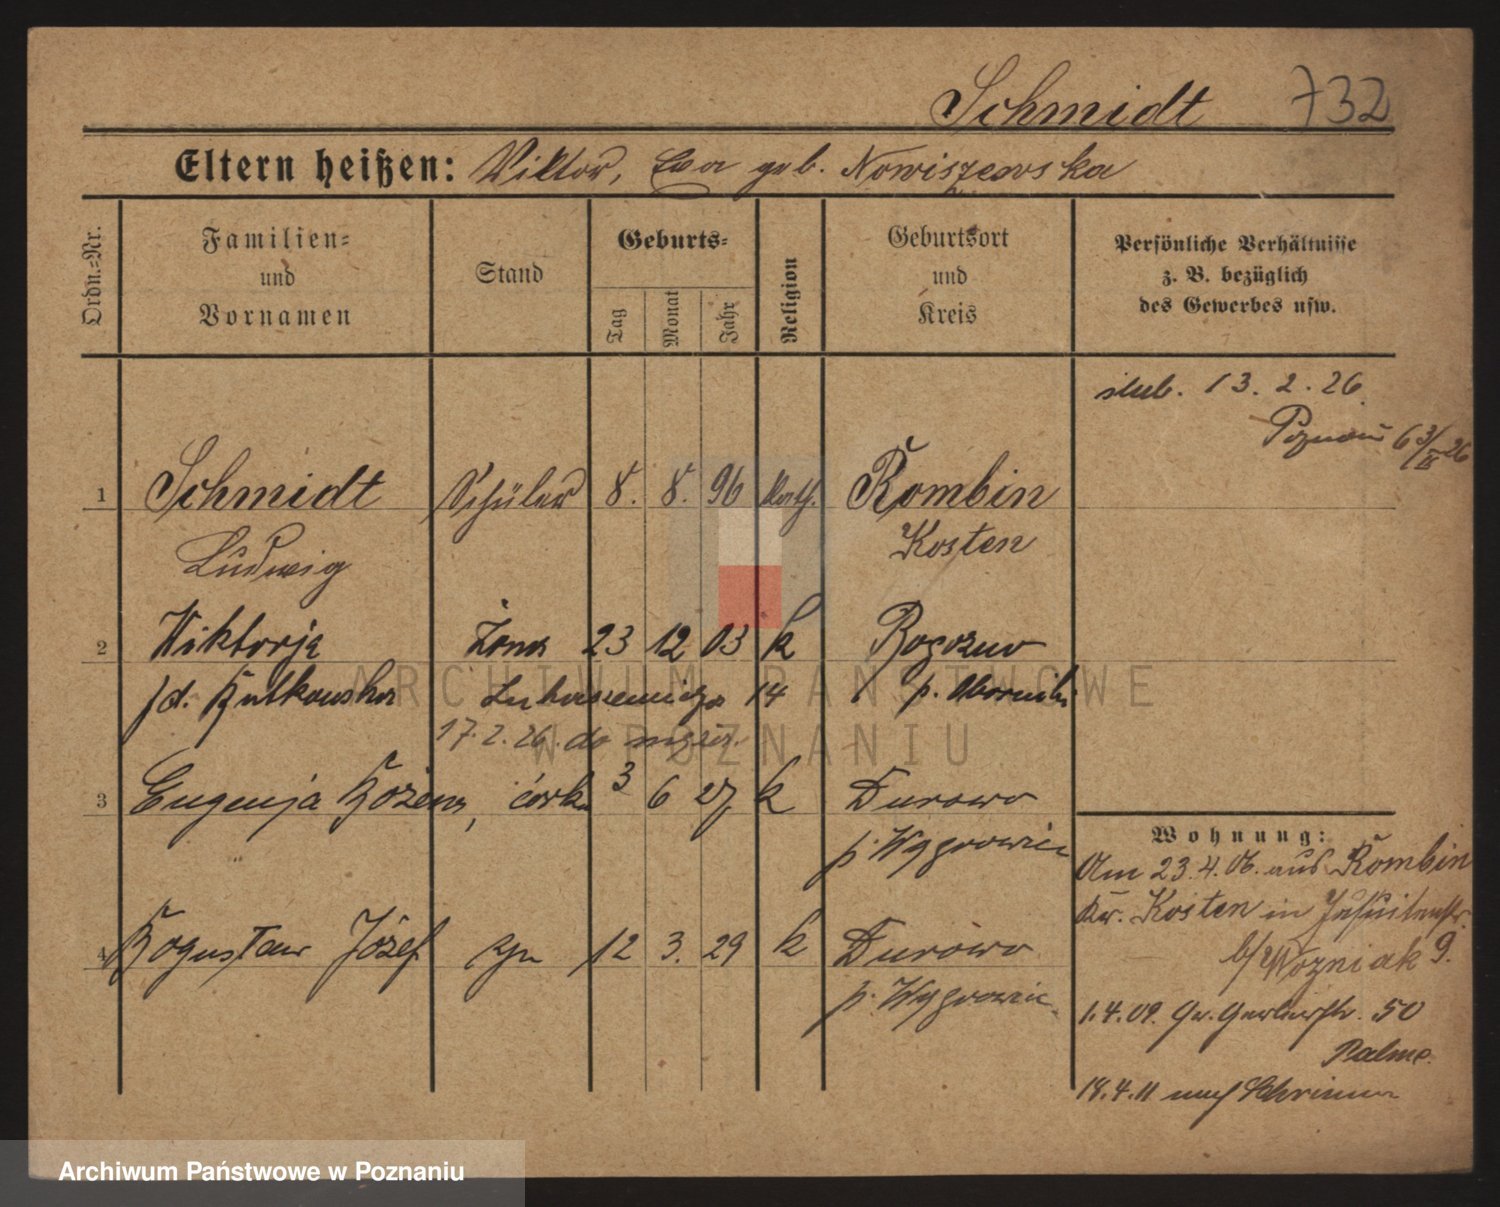 Schmidt 732
Eltern heißen: Viktor, Eva geb. Nowiszewska
Ordn.=Nr.
Familien= und Vornamen
Stand
Geburts=
Tag Monat Jahr
Religion
Geburtsort und Kreis
Persönliche Verhältnisse
z. B. bezüglich
des Gewerbes usw.
ślub. 13. 2. 26
Poznań
1 Schmidt Schüler 8. 8. 96 kath. Rombin
Ludwig Kosten
2 Wiktorja żona 23 12 03 k Rogoźno
14 p.
17. 2. 26. do
3 Eugenja Bożena, córka 3 6 27 k Durowo
p. Wągrowiec
4 Bogusław Józef syn 12 3. 29 k Durowo
p. Wągrowiec
Wohnung:
Am 23. 4. 06. aus Rombin
Kr. Kosten in Jesuitenstr.
b/ Wozniak 9.
1. 4. 09. Gr. Gerberstr. 50
18. 4. 11 nach Schrimm
ARCHIWUM PAŃSTWOWE
W POZNANIU
Archiwum Państwowe w Poznaniu